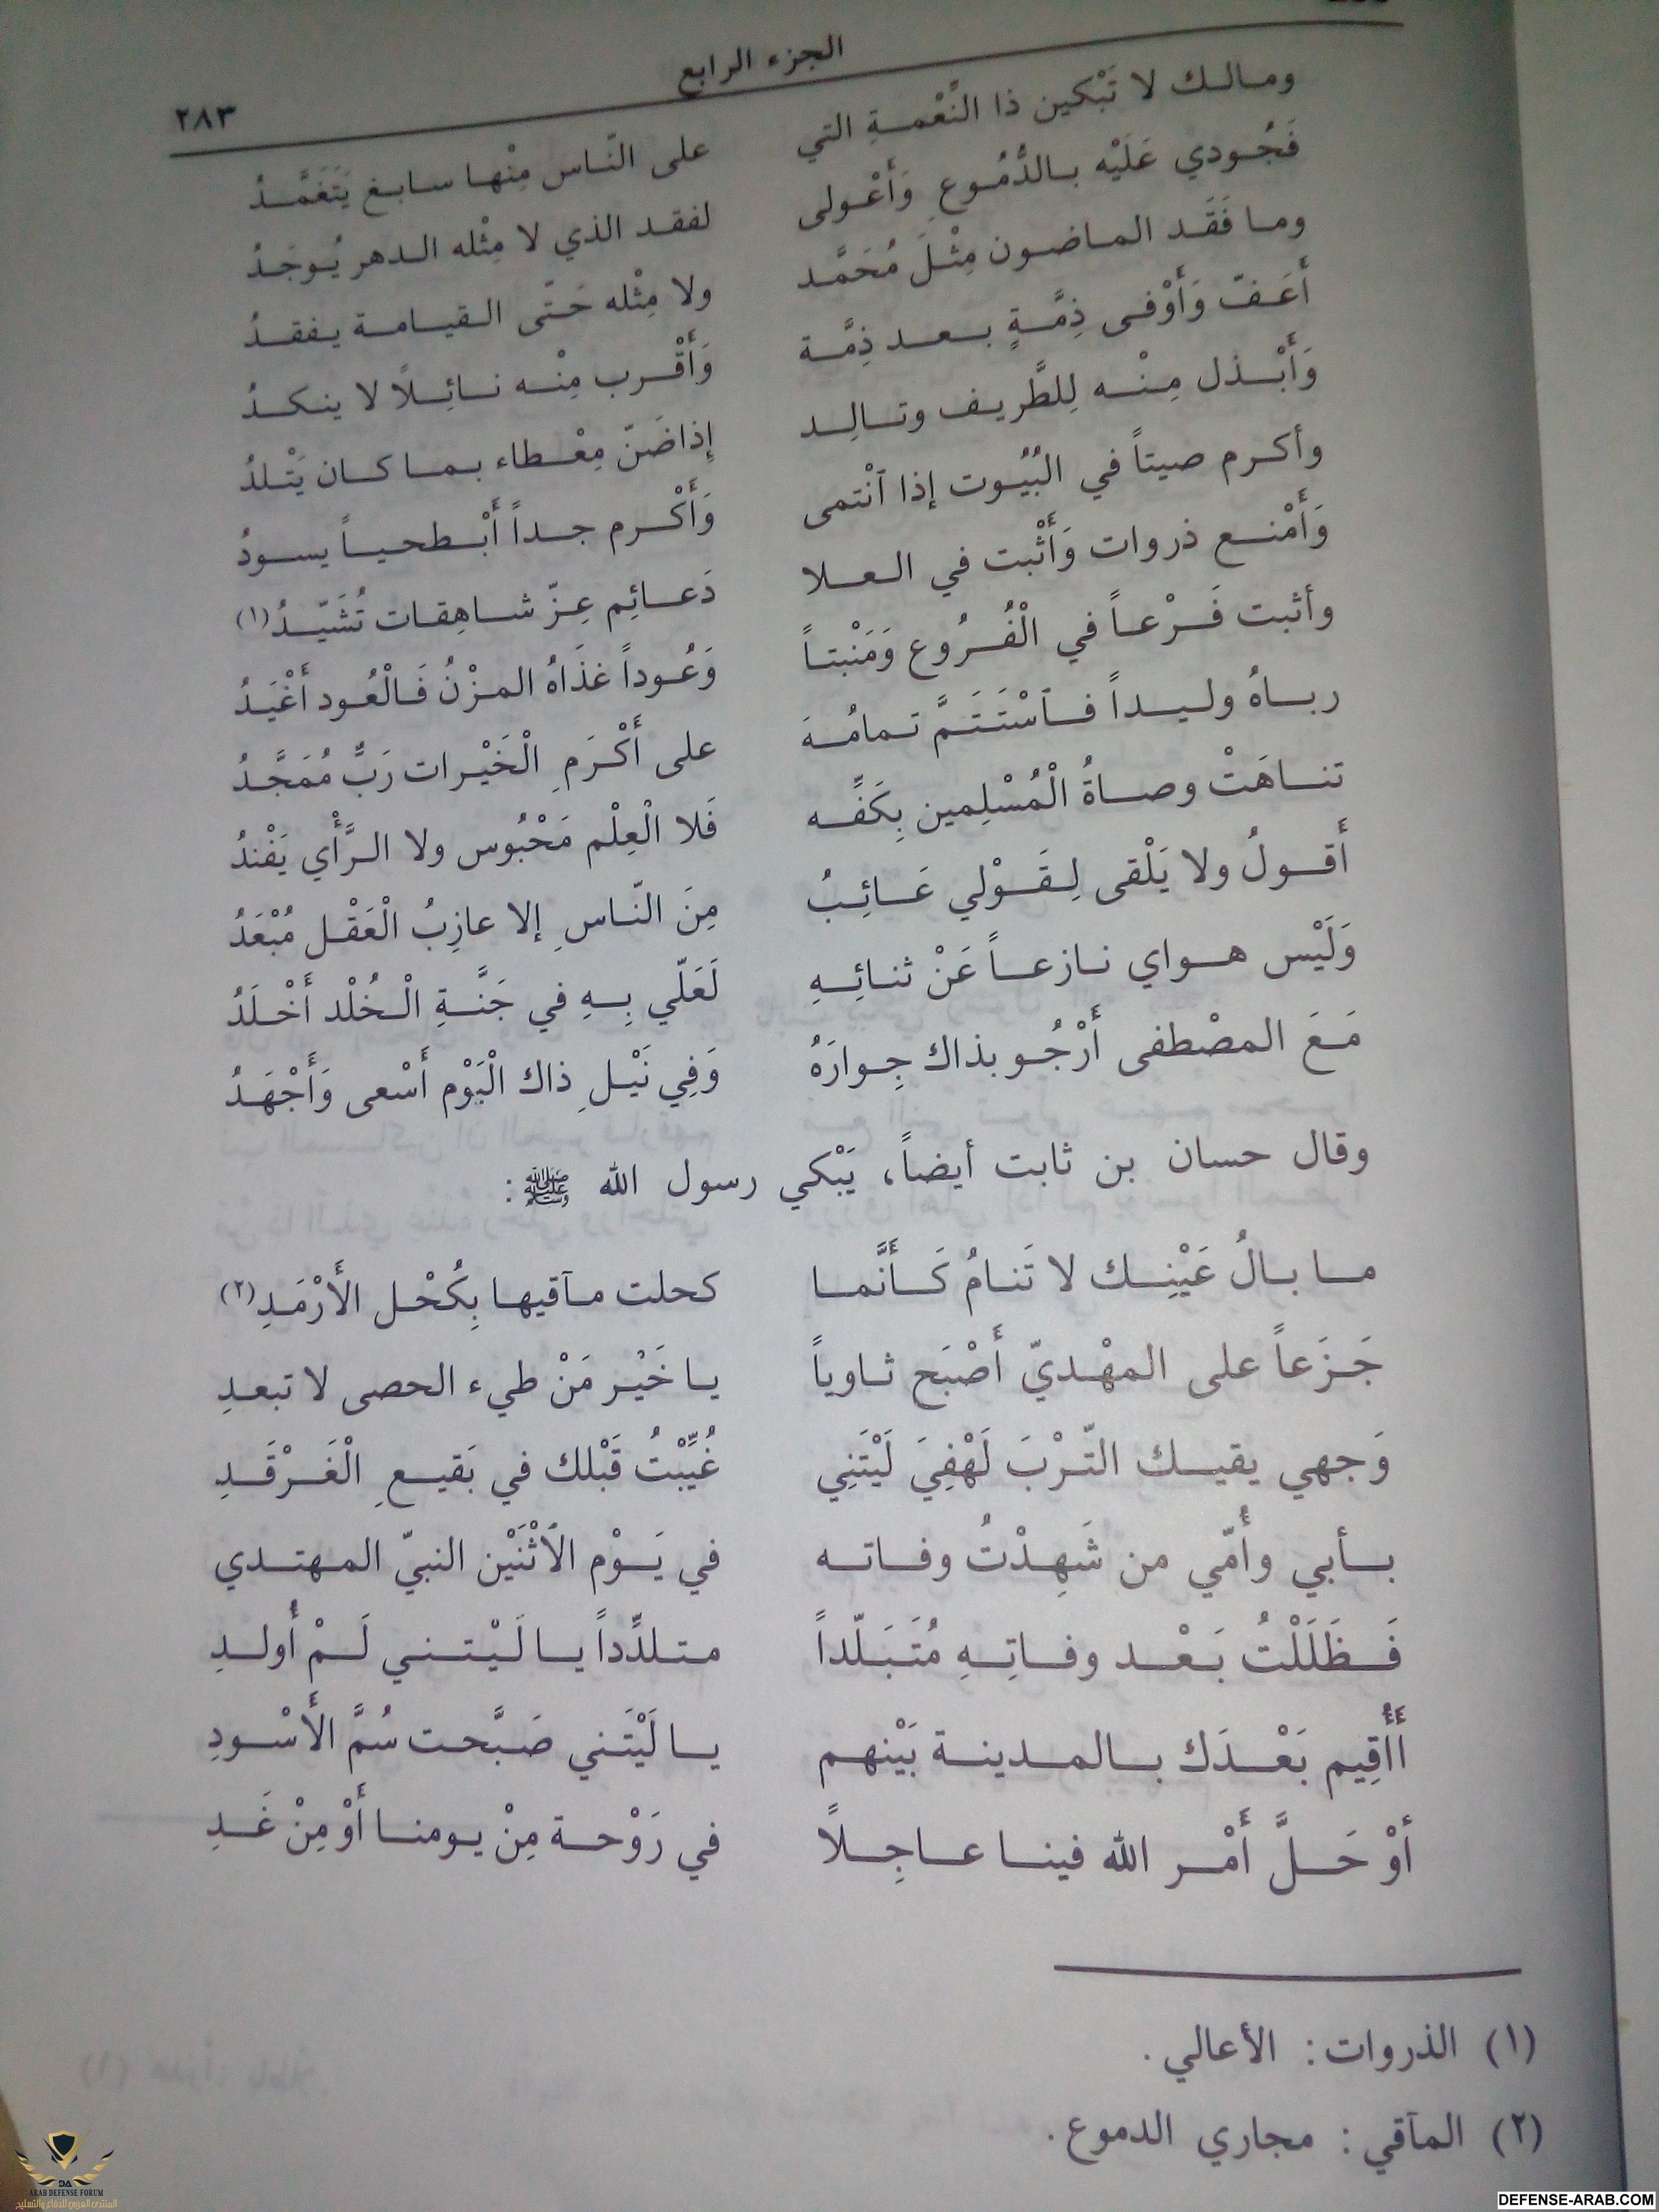 الجزء الرابع
٢٨٣
ومالك لا تَبْكين ذا النِّعْمةِ التي على النّاس مِنْها سابغ يَتَغَمَّدُ
فَجُودي عَلَيْه بالدُّمُوعِ وَأَعْولى لفقد الذي لا مِثْله الدهر يُوجَدُ
وما فَقَد الماضون مِثْلَ مُحَمَّد ولا مِثْله حَتّى القيامة يفقدُ
أَعَفّ وَأَوْفى ذِمَّةٍ بعد ذِمَّة وَأَقْرب مِنْه نائِلاً لا ينكدُ
وَأَبْذل مِنْه لِلطَّريف وتالِد إِذا ضَنّ مِعْطاء بما كان يَتْلدُ
وأكرم صيتاً في البُيُوت إذا ٱنْتمى وَأَكْرم جداً أَبْطحياً يسودُ
وَأَمْنع ذروات وَأَثْبت في العلا دَعائِم عِزّ شاهِقات تُشَيّدُ(١)
وأثبت فَرْعاً في الْفُرُوع وَمَنْبتاً وَعُوداً غذَاهُ المزْنُ فَالْعُود أَغْيَدُ
رباهُ وليداً فٱسْتَتَمَّ تمامُهَ على أَكْرَمِ الْخَيْرات رَبٌّ مُمَجَّدُ
تناهَتْ وصاةُ الْمُسْلِمين بِكَفِّه فَلا الْعِلْم مَحْبُوس ولا الرَّأْي يَفْندُ
أَقولُ ولا يَلْقى لِقَوْلي عَائِبُ مِنَ النّاسِ إلا عازِبُ الْعَقْل مُبْعَدُ
وَلَيْس هواي نازعاً عَنْ ثنائِهِ لَعَلّي بِهِ في جَنَّةِ الْخُلْد أَخْلَدُ
مَعَ المصْطفى أَرْجُو بذاك جِوارَهُ وَفِي نَيْلِ ذاك الْيَوْم أَسْعى وَأَجْهَدُ
وقال حسان بن ثابت أيضاً، يَبْكي رسول الله ﷺ:
ما بالُ عَيْنِك لا تَنامُ كَأَنَّما كحلت مآقيها بِكُحْل الأَرْمَدِ(٢)
جَزَعاً على المهْديّ أَصْبَح ثاوياً يا خَيْر مَنْ طيء الحصى لا تبعدِ
وَجهي يقيك التّرْبَ لَهْفِيَ لَيْتَنِي غُيِّبْتُ قَبْلك في بَقيعِ الْغَرْقَدِ
بأبي وأُمّي من شَهِدْتُ وفاته في يَوْم الاَثْنَيْن النبيّ المهتدي
فَظَلَلْتُ بَعْد وفاتِهِ مُتَبَلّداً متلدِّداً يا لَيْتني لَمْ أُولدِ
أَأُقِيم بَعْدَك بالمدينة بَيْنهم يا لَيْتَني صَبَّحت سُمَّ الأَسْودِ
أوْ حَلَّ أَمْر الله فينا عاجِلاً في رَوْحة مِنْ يومنا أَوْ مِنْ غَدِ
(١) الذروات: الأعالي.
(٢) المآقي: مجاري الدموع.
ARAB DEFENSE FORUM
المنتدى العربي للدفاع والتسليح
DEFENSE-ARAB.COM